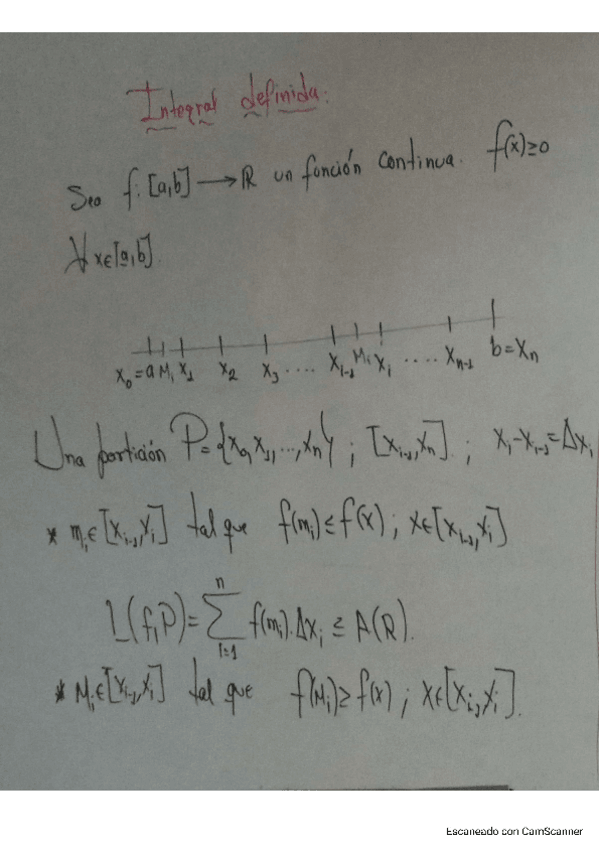 Integral definida:
Sea f: [a,b] → ℝ un función continua. f(x)≥0
∀ x∈[a,b].
x₀=a M₁ x₁ x₂ x₃ .... xᵢ₋₁ Mᵢ xᵢ .... xₙ₋₁ b=xₙ
Una partición P={x₀, x₁,..., xₙ} ; [xᵢ₋₁, xₙ] ; xᵢ-xᵢ₋₁=Δxᵢ
* mᵢ∈[xᵢ₋₁, xᵢ] tal que f(mᵢ)≤f(x) ; x∈[xᵢ₋₁, xᵢ]
L(f,P)=∑ⁿᵢ₌₁ f(mᵢ).Δxᵢ ≤ A(R).
* Mᵢ∈[xᵢ₋₁, xᵢ] tal que f(Mᵢ)≥f(x) ; x∈[xᵢ₋₁, xᵢ].
Escaneado con CamScanner